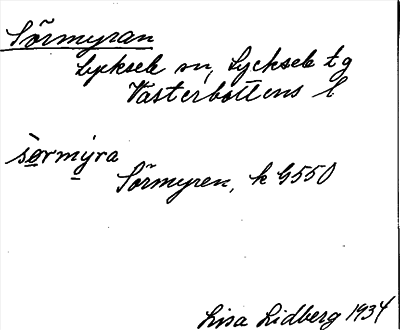 Sörmyran
Lycksele sn, Lycksele tg
Västerbottens l
sörmýra
Sörmyren, k G550
Lisa Lidberg 1934